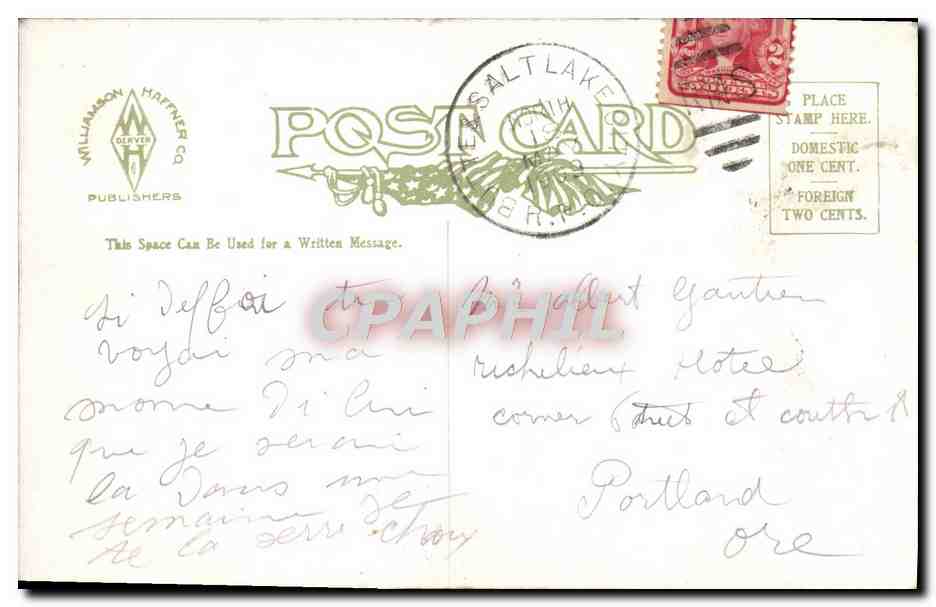 WILLIAMSON HAFFNER CO.
DENVER
PUBLISHERS
POST CARD
SALT LAKE CITY
2
PLACE
STAMP HERE.
DOMESTIC
ONE CENT.
FOREIGN
TWO CENTS.
This Space Can Be Used for a Written Message.
CPAPHIL
si deffoi tu
voyai ma
mome di lui
que je serai
la dans une
semaine je
te la serre
albert Gautier
richelieux Hotel
corner et couth
Portland
Ore